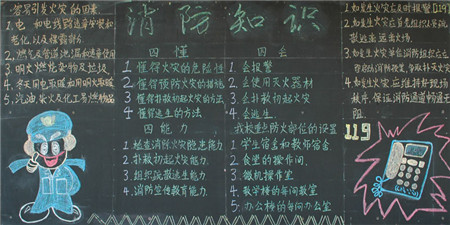 消防知识
容易引发火灾的因素
1. 电
老化
2. 燃气
3. 明火燃
4. 冬天用电取暖和用明火取暖
5. 汽油
四懂
1 懂得火灾的危险性
2 懂得预防火灾的措施
3 懂得扑救初起火灾的方法
4 懂得逃生的方法
四会
1 会报警
2 会使用灭火器材
3 会扑救初起火灾
4 会逃生
四能力
1. 检查消除火灾隐患能力
2. 扑救初起火灾能力
3. 组织疏散逃生能力
4. 消防宣传教育能力
我校重点防火部位的设置
1. 学生宿舍和教师宿舍
2. 食堂的操作间
3. 微机操作室
4. 教学楼的每间教室
5. 办公楼的每间办公室
1. 如发生火灾应及时报警[119]
2. 如发生火灾应首先组织人员疏
散
3. 如发生火灾单位消防组织应
4. 如发生火灾应维持好现场
秩序, 保证消防通道畅通无
阻
119